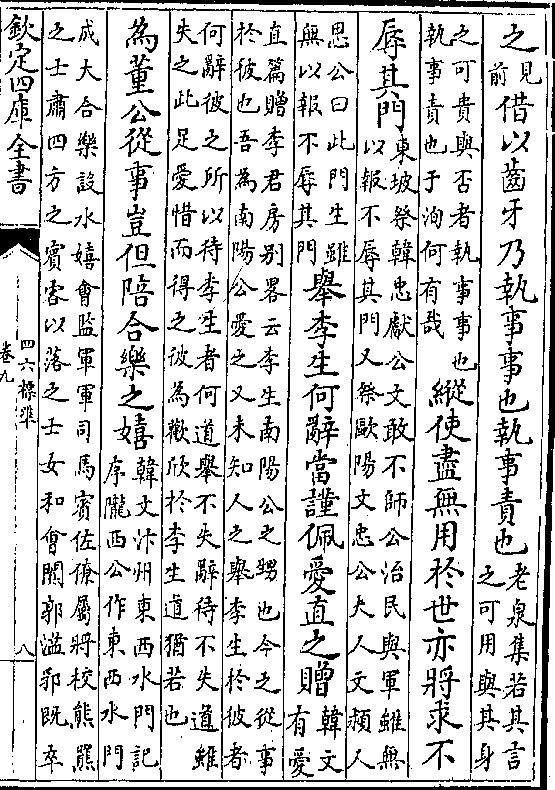 之見前借以齒牙乃執事事也執事責也老泉集若其言之可用與其身
之可貴與否者執事事也執事責也于洵何有哉縱使盡無用於世亦將求不
辱其門東坡祭韓忠獻公文敢不師公治民與軍雖無以報不辱其門又祭歐陽文忠公夫人文頼人
思公曰此門生雖無以報不辱其門舉李生何辭當謹佩愛直之贈韓文有愛
直篇贈李君房别畧云李生南陽公之甥也今之從事於彼也吾為南陽公愛之又未知人之舉李生於彼者
何辭彼之所以待李生者何道舉不失辭待不失道雖失之此足愛惜而得之彼為歡欣於李生道猶若也
為董公從事豈但陪合樂之嬉韓文汴州東西水門記序隴西公作東西水門
成大合樂設水嬉會監軍軍司馬賓佐僚屬將校熊羆之士肅四方之賓客以落之士女和會闐郭溢郛既卒
欽定四庫全書
四六標準
卷九
八